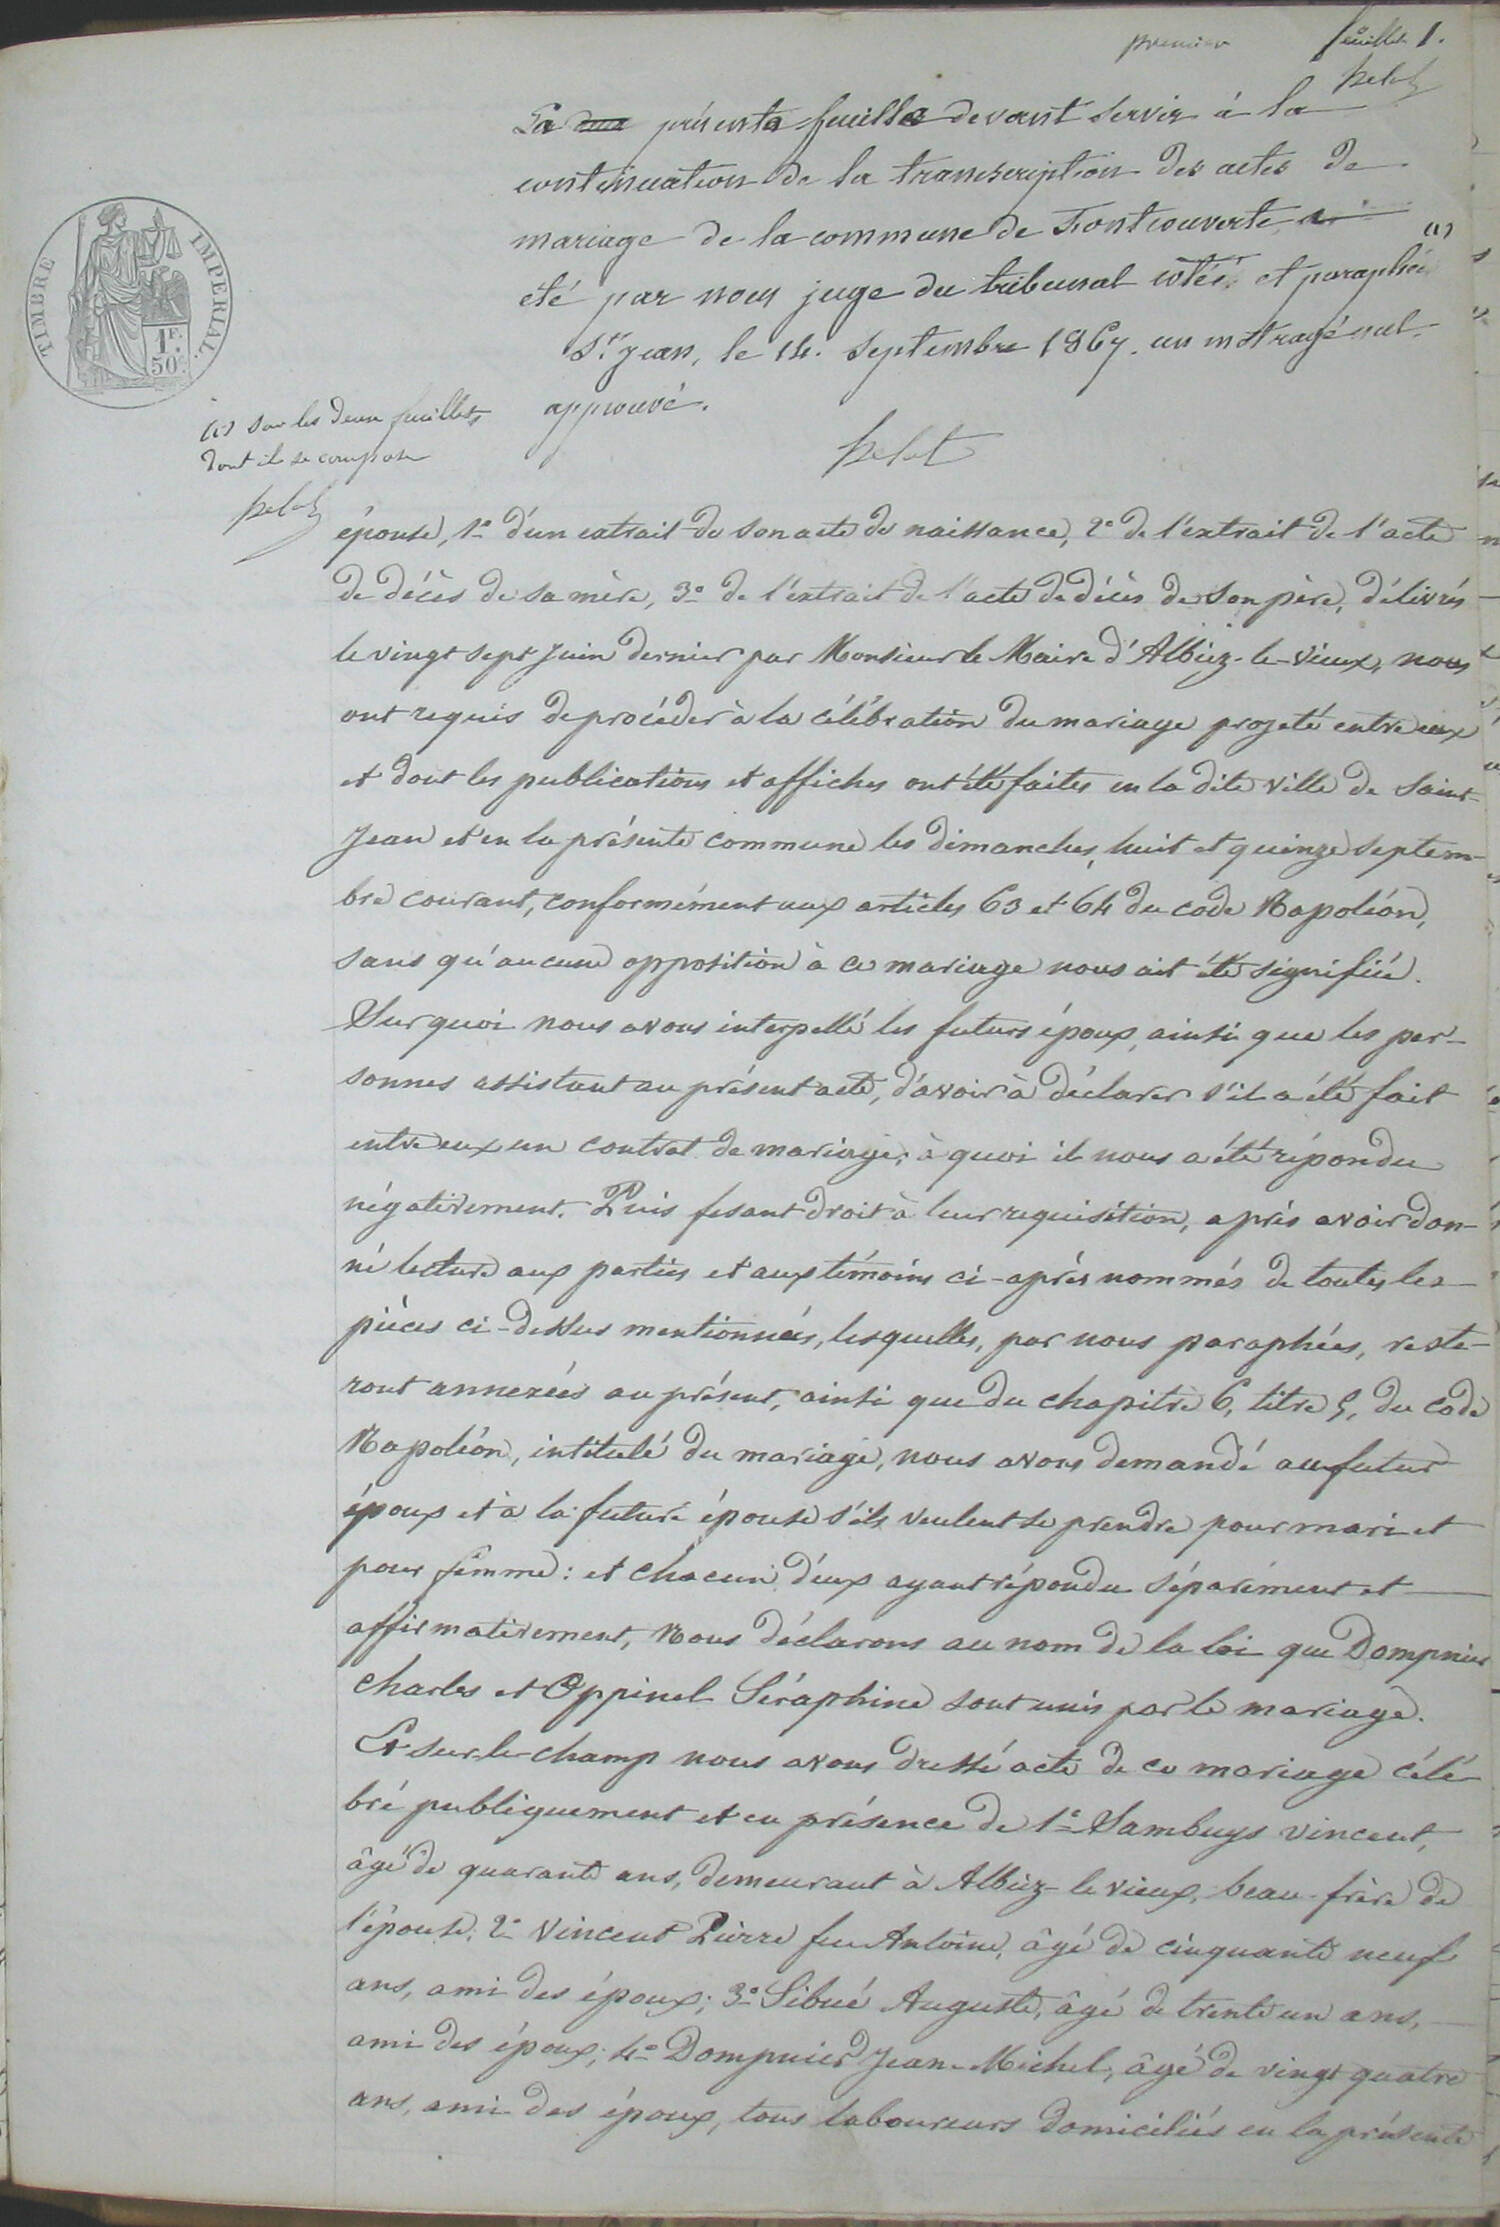 premier feuillet 1.
La présente feuille devant servir à la
continuation de la transcription des actes de
mariage de la commune de Fontcouverte a
été par nous juge du tribunal cotée et paraphée (1)
St Jean, le 14. Septembre 1867. un mot rayé nul
approuvé.
TIMBRE IMPERIAL.
1F.
50c.
(1) sur les deux feuillets
dont il se compose
épouse, 1o d'un extrait de son acte de naissance, 2o de l'extrait de l'acte
de décès de sa mère, 3o de l'extrait de l'acte de décès de son père, délivrés
le vingt sept Juin dernier par Monsieur le Maire d'Albiez-le-Vieux, nous
ont requis de procéder à la célébration du mariage projeté entre eux
et dont les publications et affiches ont été faites en la dite ville de Saint-
Jean et en la présente commune les dimanches, huit et quinze septem-
bre courant, conformément aux articles 63 et 64 du code Napoléon,
sans qu'aucune opposition à ce mariage nous ait été signifiée.
Sur quoi nous avons interpellé les futurs époux, ainsi que les per-
sonnes assistant au présent acte, d'avoir à déclarer s'il a été fait
entre eux un contrat de mariage, à quoi il nous a été répondu
négativement. Puis fesant droit à leur requisition, après avoir don-
né lecture aux parties et aux témoins ci-après nommés de toutes les
pièces ci-dessus mentionnées, lesquelles, par nous paraphées, reste-
ront annexées au présent, ainsi que du chapitre 6, titre 5, du code
Napoléon, intitulé du mariage, nous avons demandé au futur
époux et à la future épouse s'ils veulent se prendre pour mari et
pour femme: et chacun d'eux ayant répondu séparément et
affirmativement, Nous déclarons au nom de la loi que Dompnier
Charles et Oppinel Séraphine sont unis par le mariage.
Et sur-le-champ nous avons dressé acte de ce mariage célé-
bré publiquement et en présence de 1o Sambuys Vincent,
âgé de quarante ans, demeurant à Albiez-le vieux, beau-frère de
l'épouse; 2o Vincent Pierre feu Antoine, âgé de cinquante neuf
ans, ami des époux; 3o Sibué Auguste, âgé de trente un ans,
ami des époux; 4o Dompnier Jean-Michel, âgé de vingt quatre
ans, ami des époux, tous laboureurs domiciliés en la présente